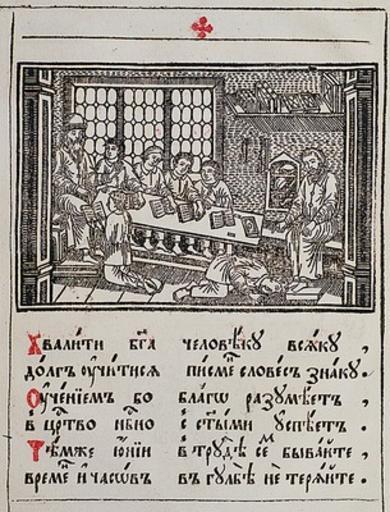 Хвали́ти бг҃а человѣ́ку вся́ку ,
до́лгъ ᲂу҆чи́тисѧ писме́ⷩ҇ слове́съ зна́ку .
Оу҆че́нїемъ бо бла́гѡ разꙋмѣ́етъ ,
в црⷭ҇тво нбⷭ҇но с ст҃ы́ми ᲂу҆спѣ́етъ .
Тѣ́мже ю҆́нїи в трꙋдѣ̀ се́мъ быва́йте ,
време́ⷩ҇ и҆ часѡ́въ въ гꙋльбѣ̀ не теря́йте .